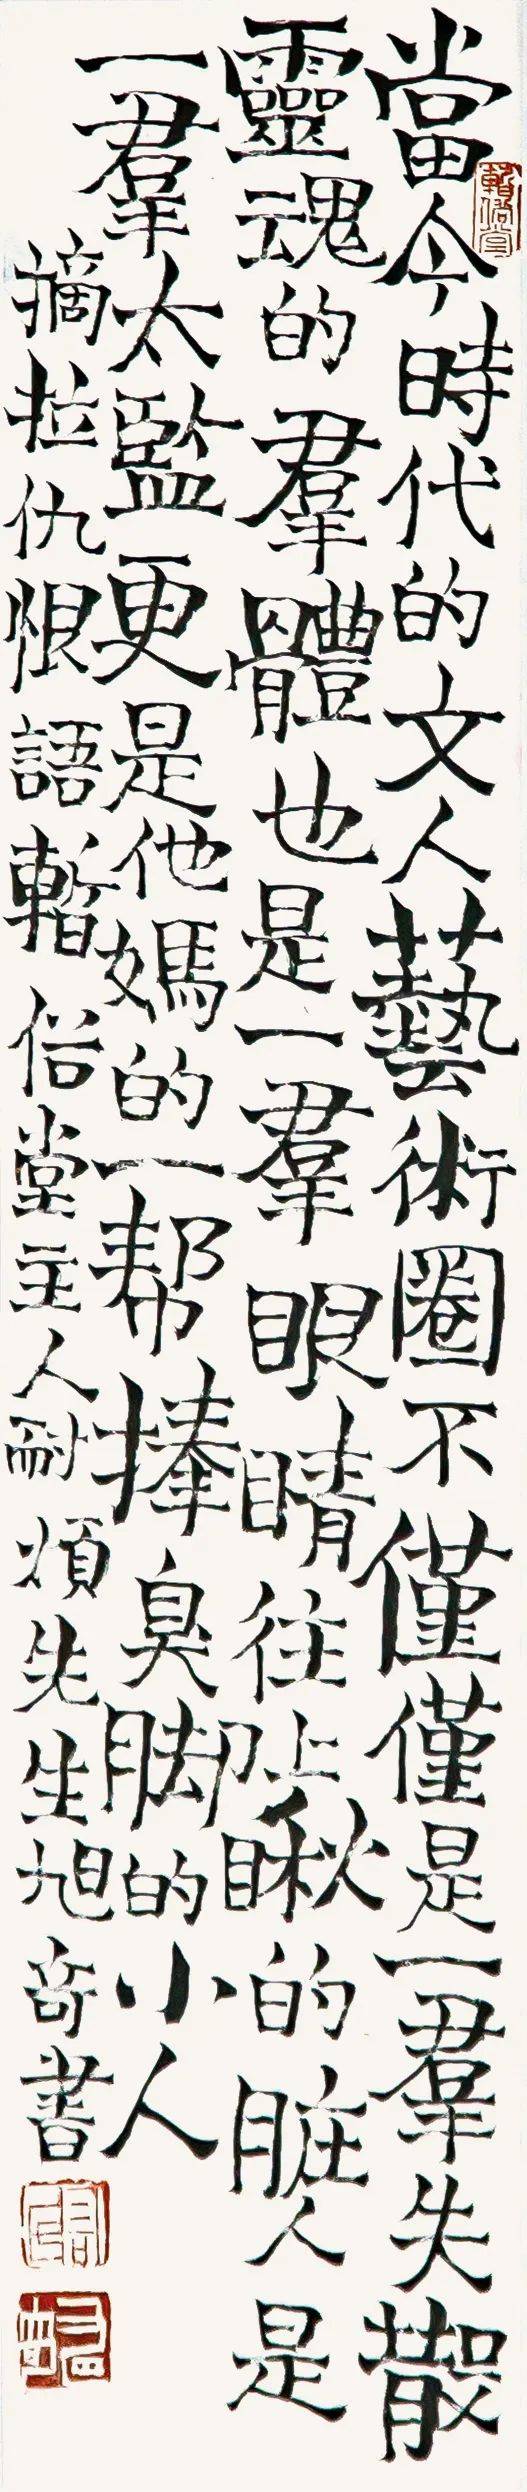 當今時代的文人藝術圈不僅僅是一羣失散
靈魂的羣體也是一羣眼睛往上瞅的脏人是
一羣太監更是他媽的一帮捧臭脚的小人
摘拉仇恨語暫俗堂主人耐煩先生旭奇書